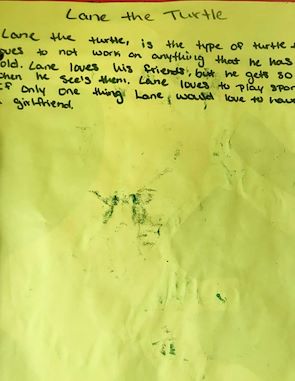 Lane the Turtle
Lane the turtle, is the type of turtle
to not work on anything that he has
old. Lane loves his friends, but he gets so
he see's them. Lane loves to play
only one thing Lane would love to have
girlfriend.